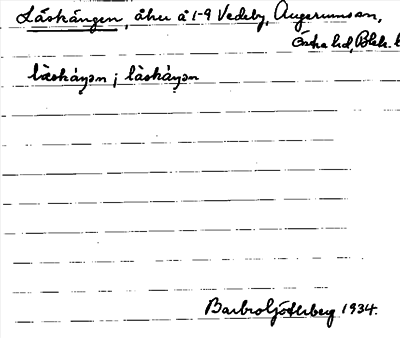 Läskängen, åker å 1-9 Vedeby, Augerumssn,
Östra hd, Blek. l
læskæŋən ; lǻskæŋən
Barbro Söderberg 1934.